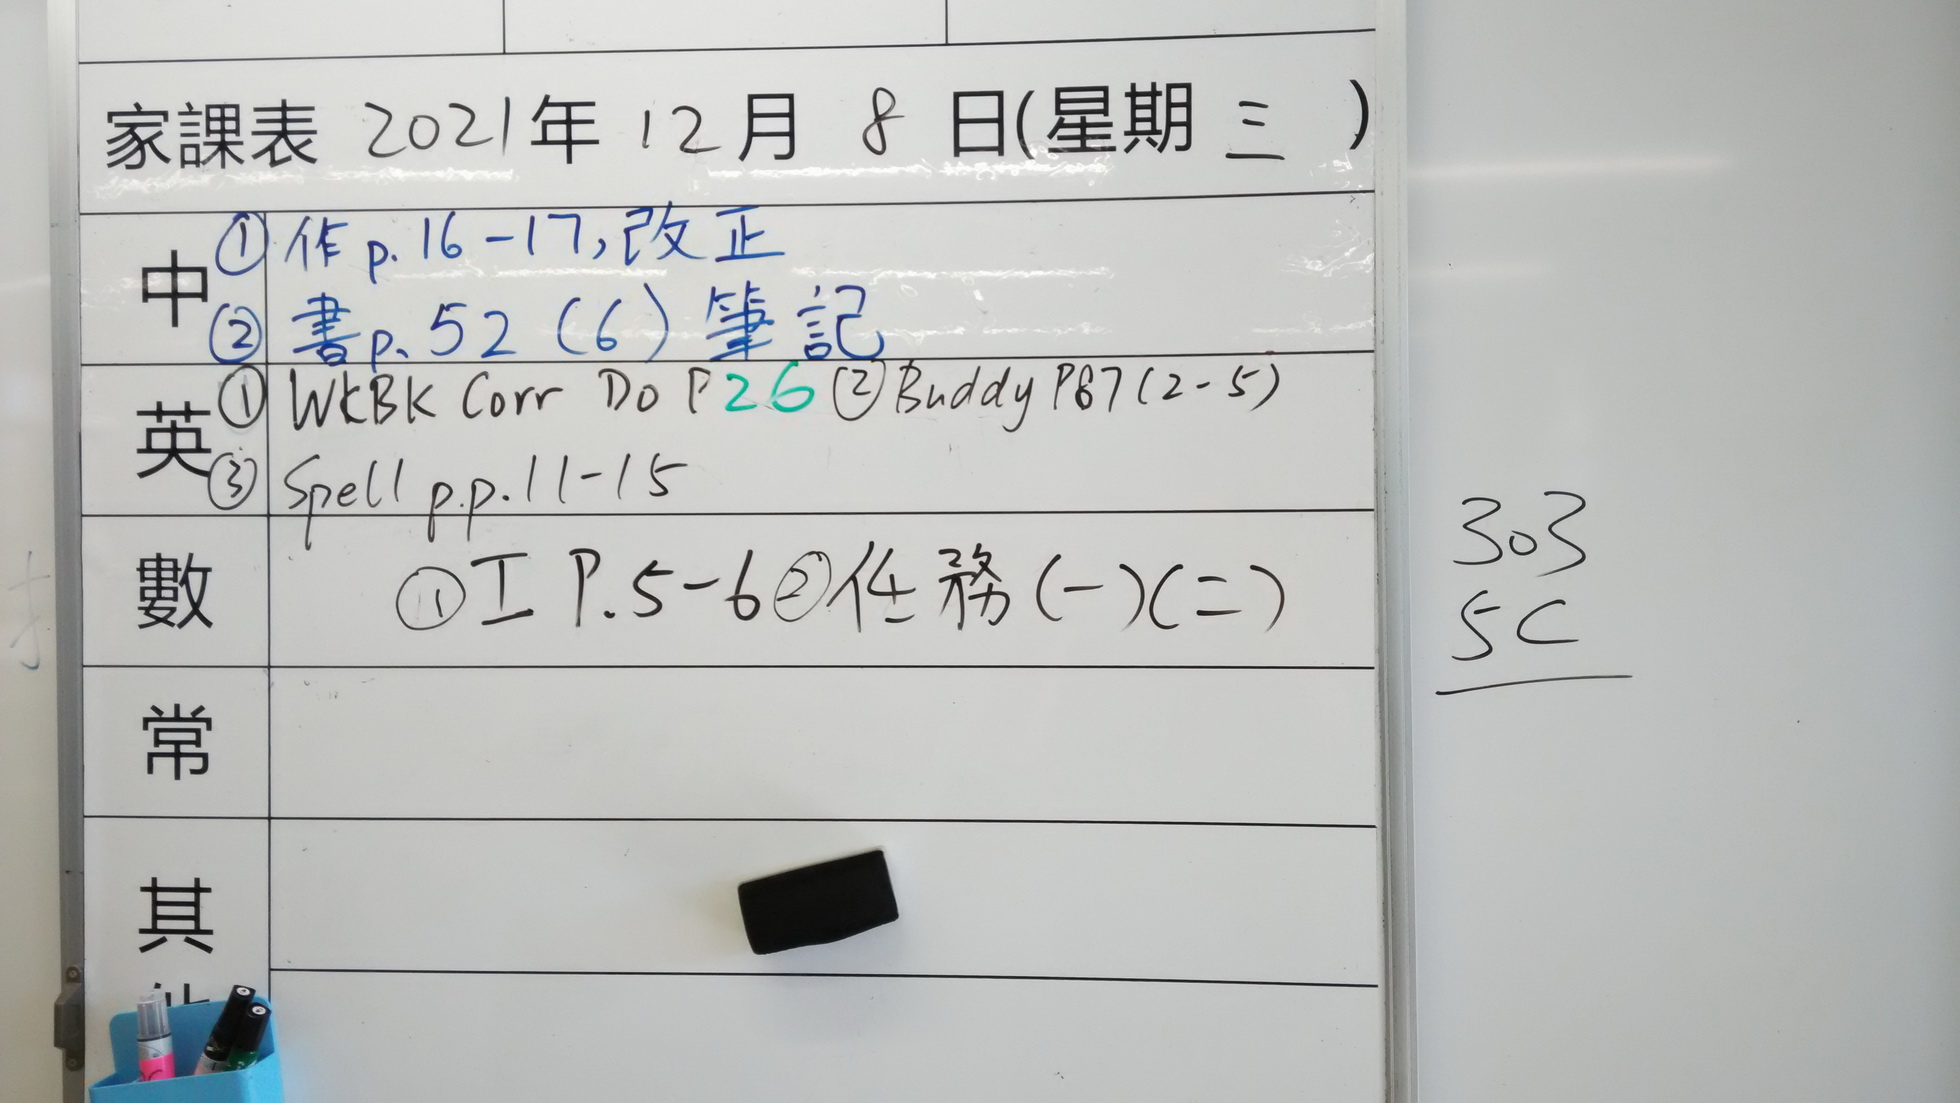 家課表 2021年 12月 8日(星期三)
中 ①作p.16-17,改正
②書p.52(6)筆記
英 ①WKBK Corr Do P26 ②Buddy P87(2-5)
③Spell p.p.11-15
數 ①工 P.5-6②任務(一)(二)
常
其
303
5C